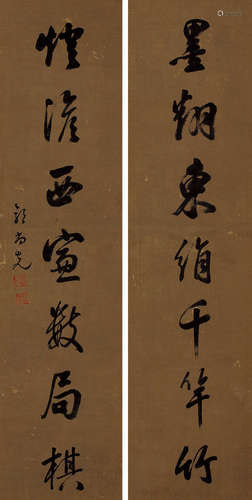 墨翻東絹千竿竹
燈澹西窗數局棋
郭尚先